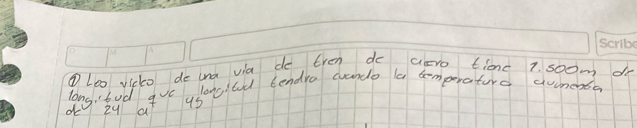 Scribe
① Los rieles de una via de tren de acero tiene 1.500m de
longitud que longitud tendra cuando la temperatura aumenta
de 24 a 45